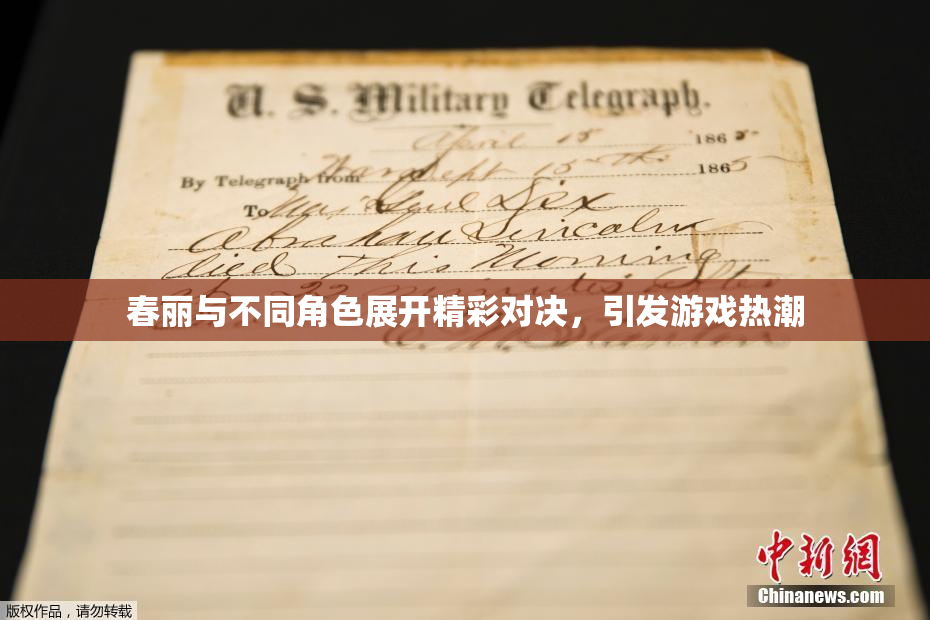 U. S. Military Telegraph.
April 15 1865
By Telegraph from War Dept 15th 1865
To Maj Genl Dix
Abraham Lincoln
died this Morning
at 22 minutes after
春丽与不同角色展开精彩对决，引发游戏热潮
E. M. Stanton
中新网
Chinanews.com
版权作品，请勿转载